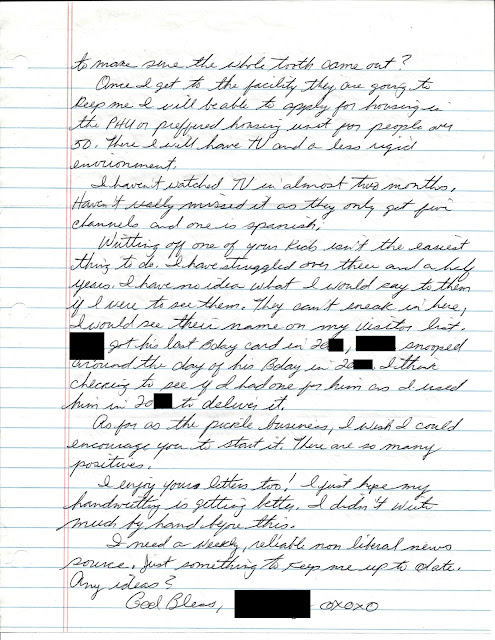 to make sure the whole tooth came out?
Once I get to the facility they are going to
keep me I will be able to apply for housing in
the PHU or preffured housing unit for people over
50. There I will have TV and a less rigid
environment.
I haven't watched TV in almost two months.
Haven't really missed it as they only get five
channels and one is spanish.
Writting off one of your kids isn't the easiest
thing to do. I have struggled over three and a half
years. I have no idea what I would say to them
if I were to see them. They can't sneak in here,
I would see their name on my visitor list.
got his last Bday card in 20 , snooped
around the day of his Bday in 20 . I think
checking to see if I had one for him as I used
him in 20 to deliver it.
As for as the pickle business, I wish I could
encourage you to start it. There are so many
positives.
I enjoy yours letters too! I just hope my
handwritting is getting better. I didn't write
much by hand before this.
I need a weekly, reliable non liberal news
source. Just something to keep me up to date.
Any ideas?
God Bless, oxoxo